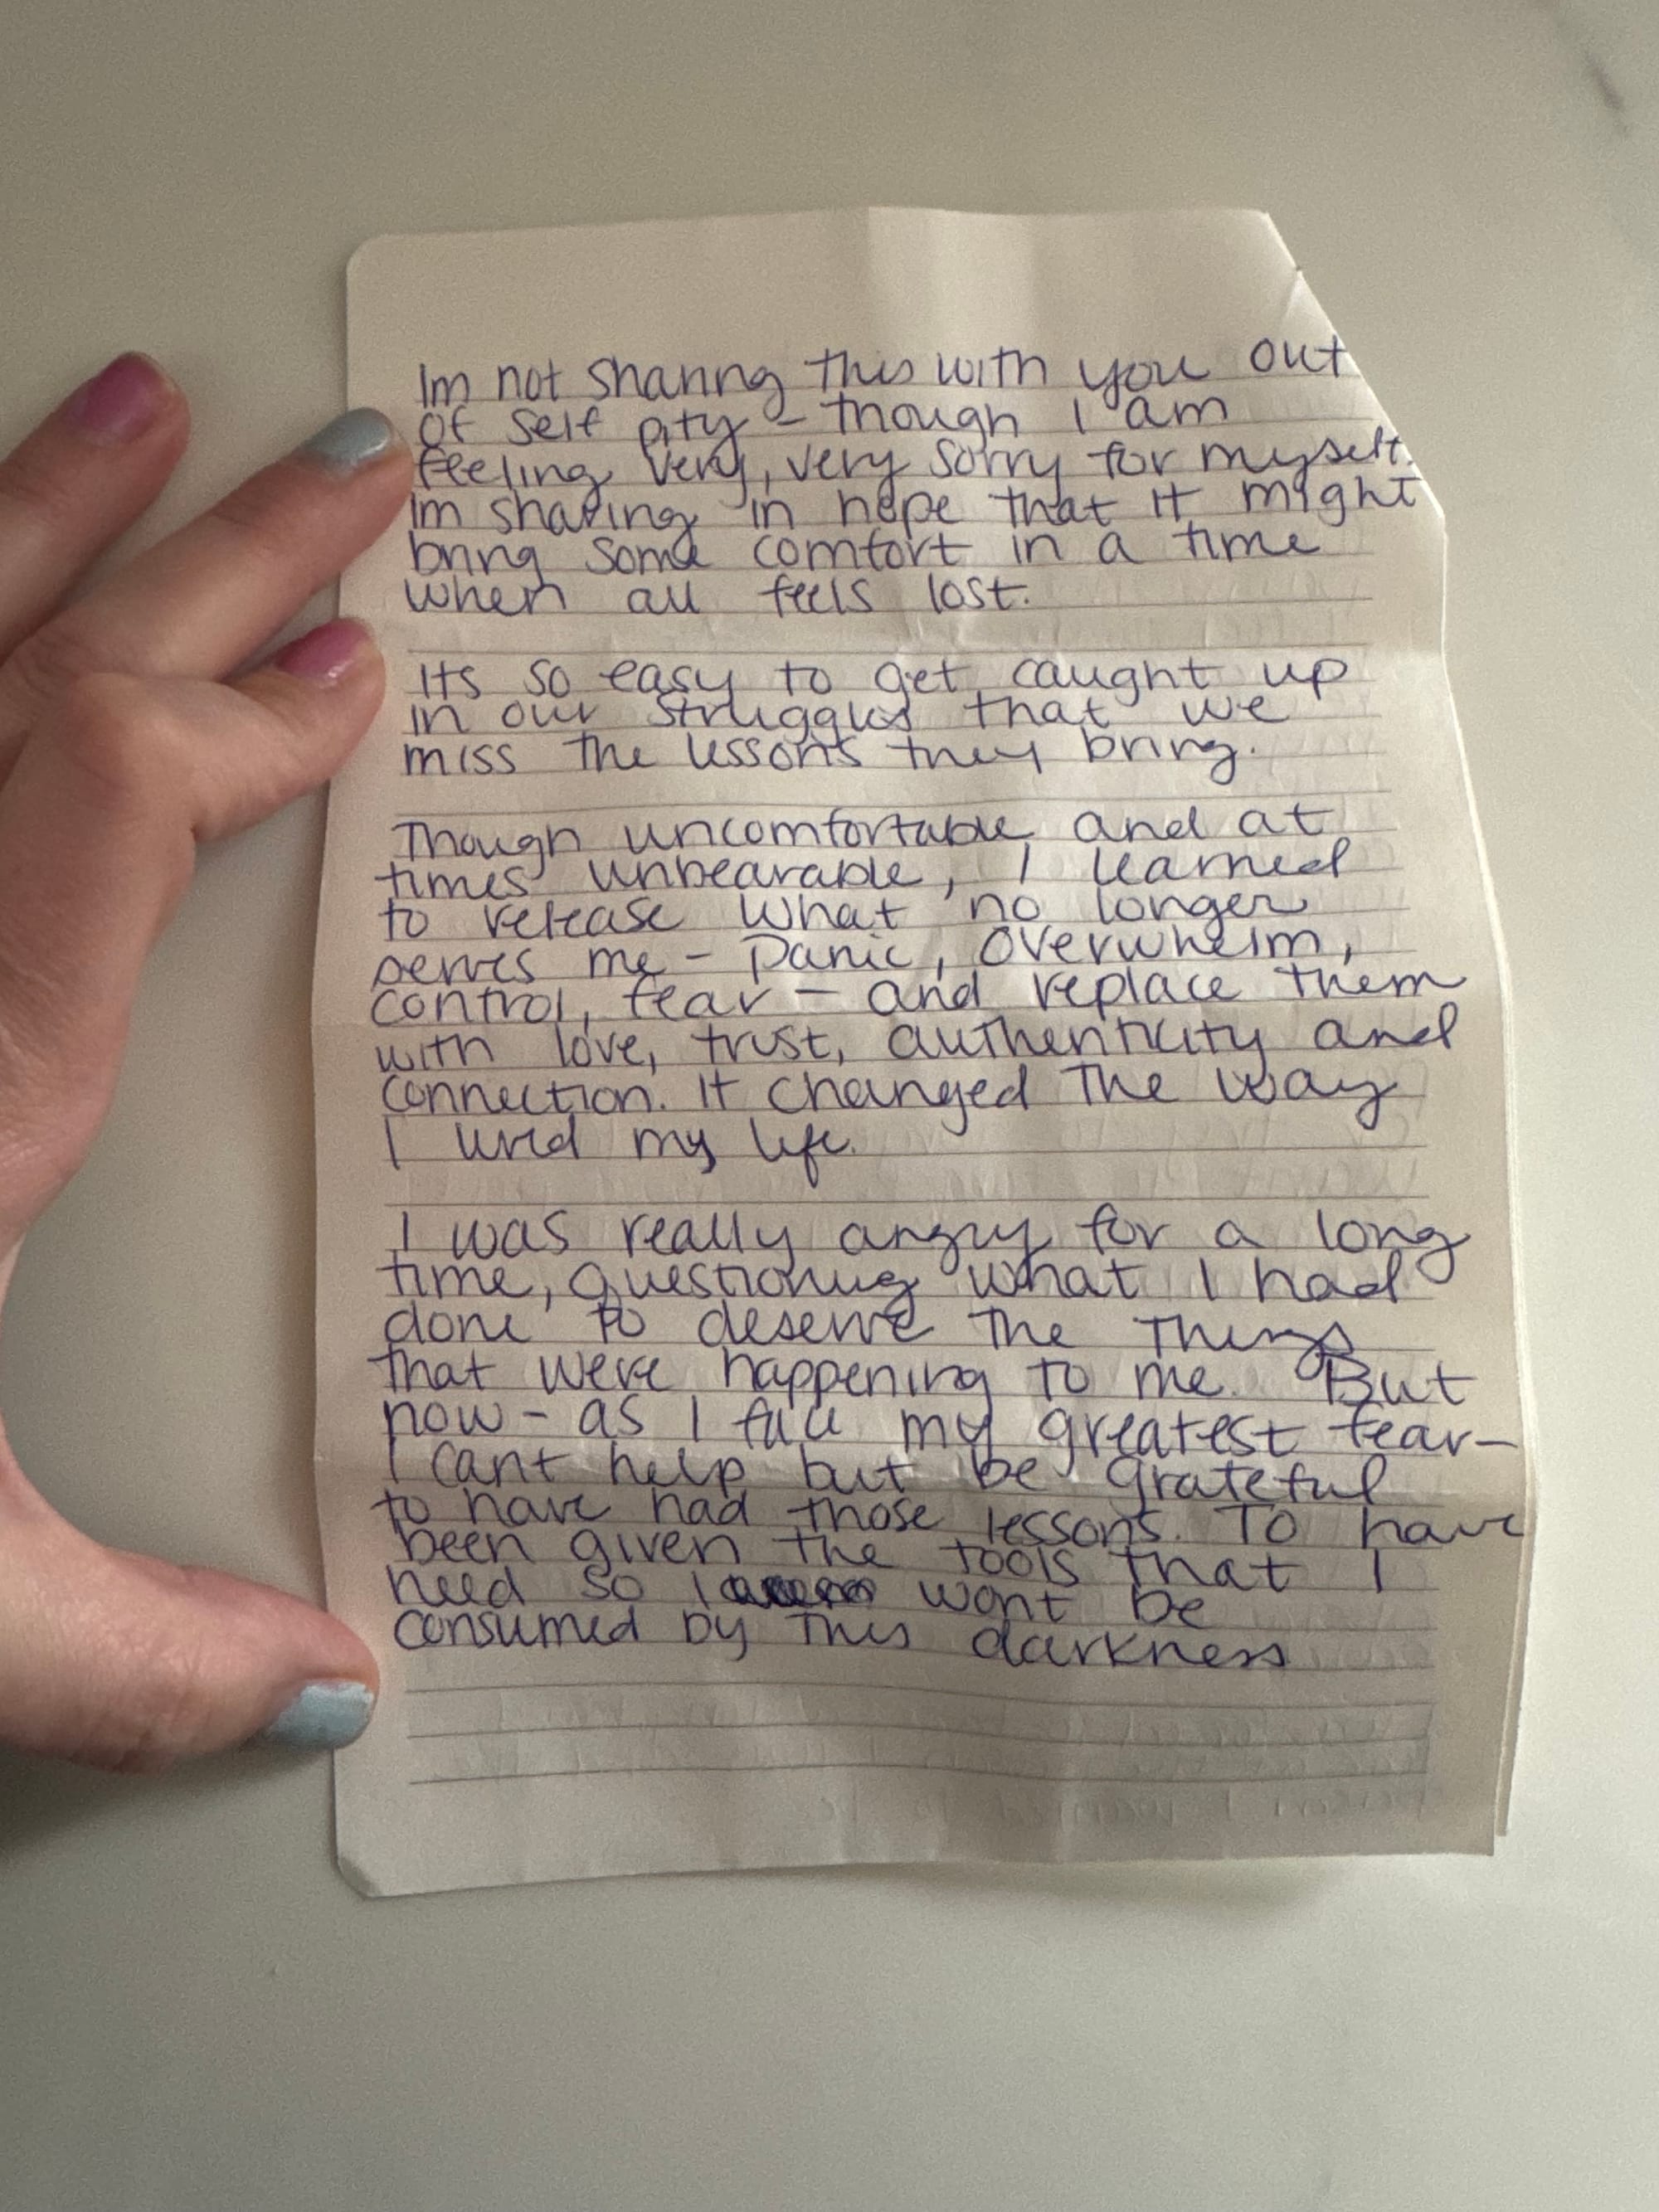 Im not sharing this with you out
of self pity - though I am
feeling very, very sorry for myself.
Im sharing in hope that it might
bring some comfort in a time
when all feels lost.
Its so easy to get caught up
in our struggles that we
miss the lessons they bring.
Though uncomfortable and at
times unbearable, I learned
to release what no longer
serves me - Panic, overwhelm,
control, fear - and replace them
with love, trust, authenticity and
connection. It changed the way
I lived my life.
I was really angry for a long
time, questioning what I had
done to deserve the things
that were happening to me. But
now - as I face my greatest fear -
I cant help but be grateful
to have had those lessons. To have
been given the tools that I
need so I wont be
consumed by this darkness